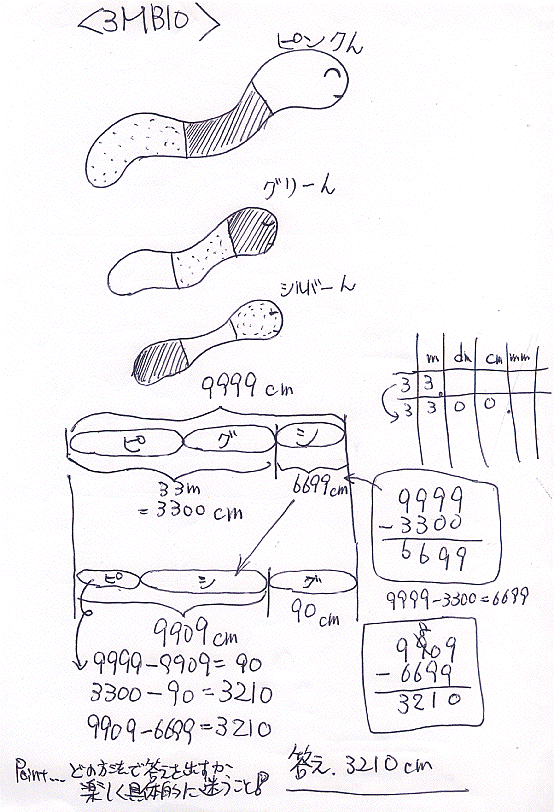 <3MB10>
ピンクん
グリーん
シルバーん
9999cm
ピ グ シ
33m
=3300cm
6699cm
m dm cm mm
3 3.
3 3 0 0.
9999
-3300
6699
9999-3300=6699
ピ シ グ
9909cm
90cm
9999-9909=90
3300-90=3210
9909-6699=3210
8
9909
-6699
3210
答え. 3210cm
Point.... どの方法で答えを出すか
楽しく具体的に迷うこと!